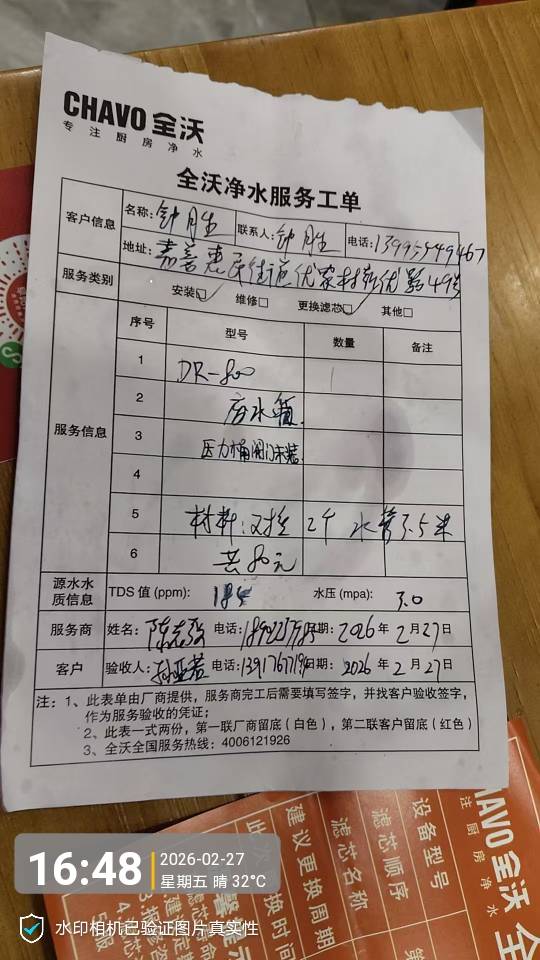 CHAVO 全沃
专注厨房净水
全沃净水服务工单
客户信息 名称: 钟月生 联系人: 钟月生 电话: 13995549467
地址: 嘉善惠民街道优家村新优路49号
服务类别 安装☑ 维修□ 更换滤芯☑ 其他□
服务信息 序号 型号 数量 备注
1 DR-800 1
2 废水箱
3 压力桶阀门未装
4
5 材料: 对接 2个 水管3.5米
6 共80元
源水水质信息 TDS 值 (ppm): 184 水压 (mpa): 3.0
服务商 姓名: 陈志强 电话: 日期: 2026年2月27日
客户 验收人: 电话: 日期: 2026年2月27日
注: 1、此表单由厂商提供，服务商完工后需要填写签字，并找客户验收签字，
作为服务验收的凭证;
2、此表一式两份，第一联厂商留底 (白色)，第二联客户留底 (红色)
3、全沃全国服务热线: 4006121926
HAVO 全沃
注厨房净水
设备型号
滤芯顺序
滤芯名称
建议更换周期
换时间
16:48
2026-02-27
星期五 晴 32℃
水印相机已验证图片真实性